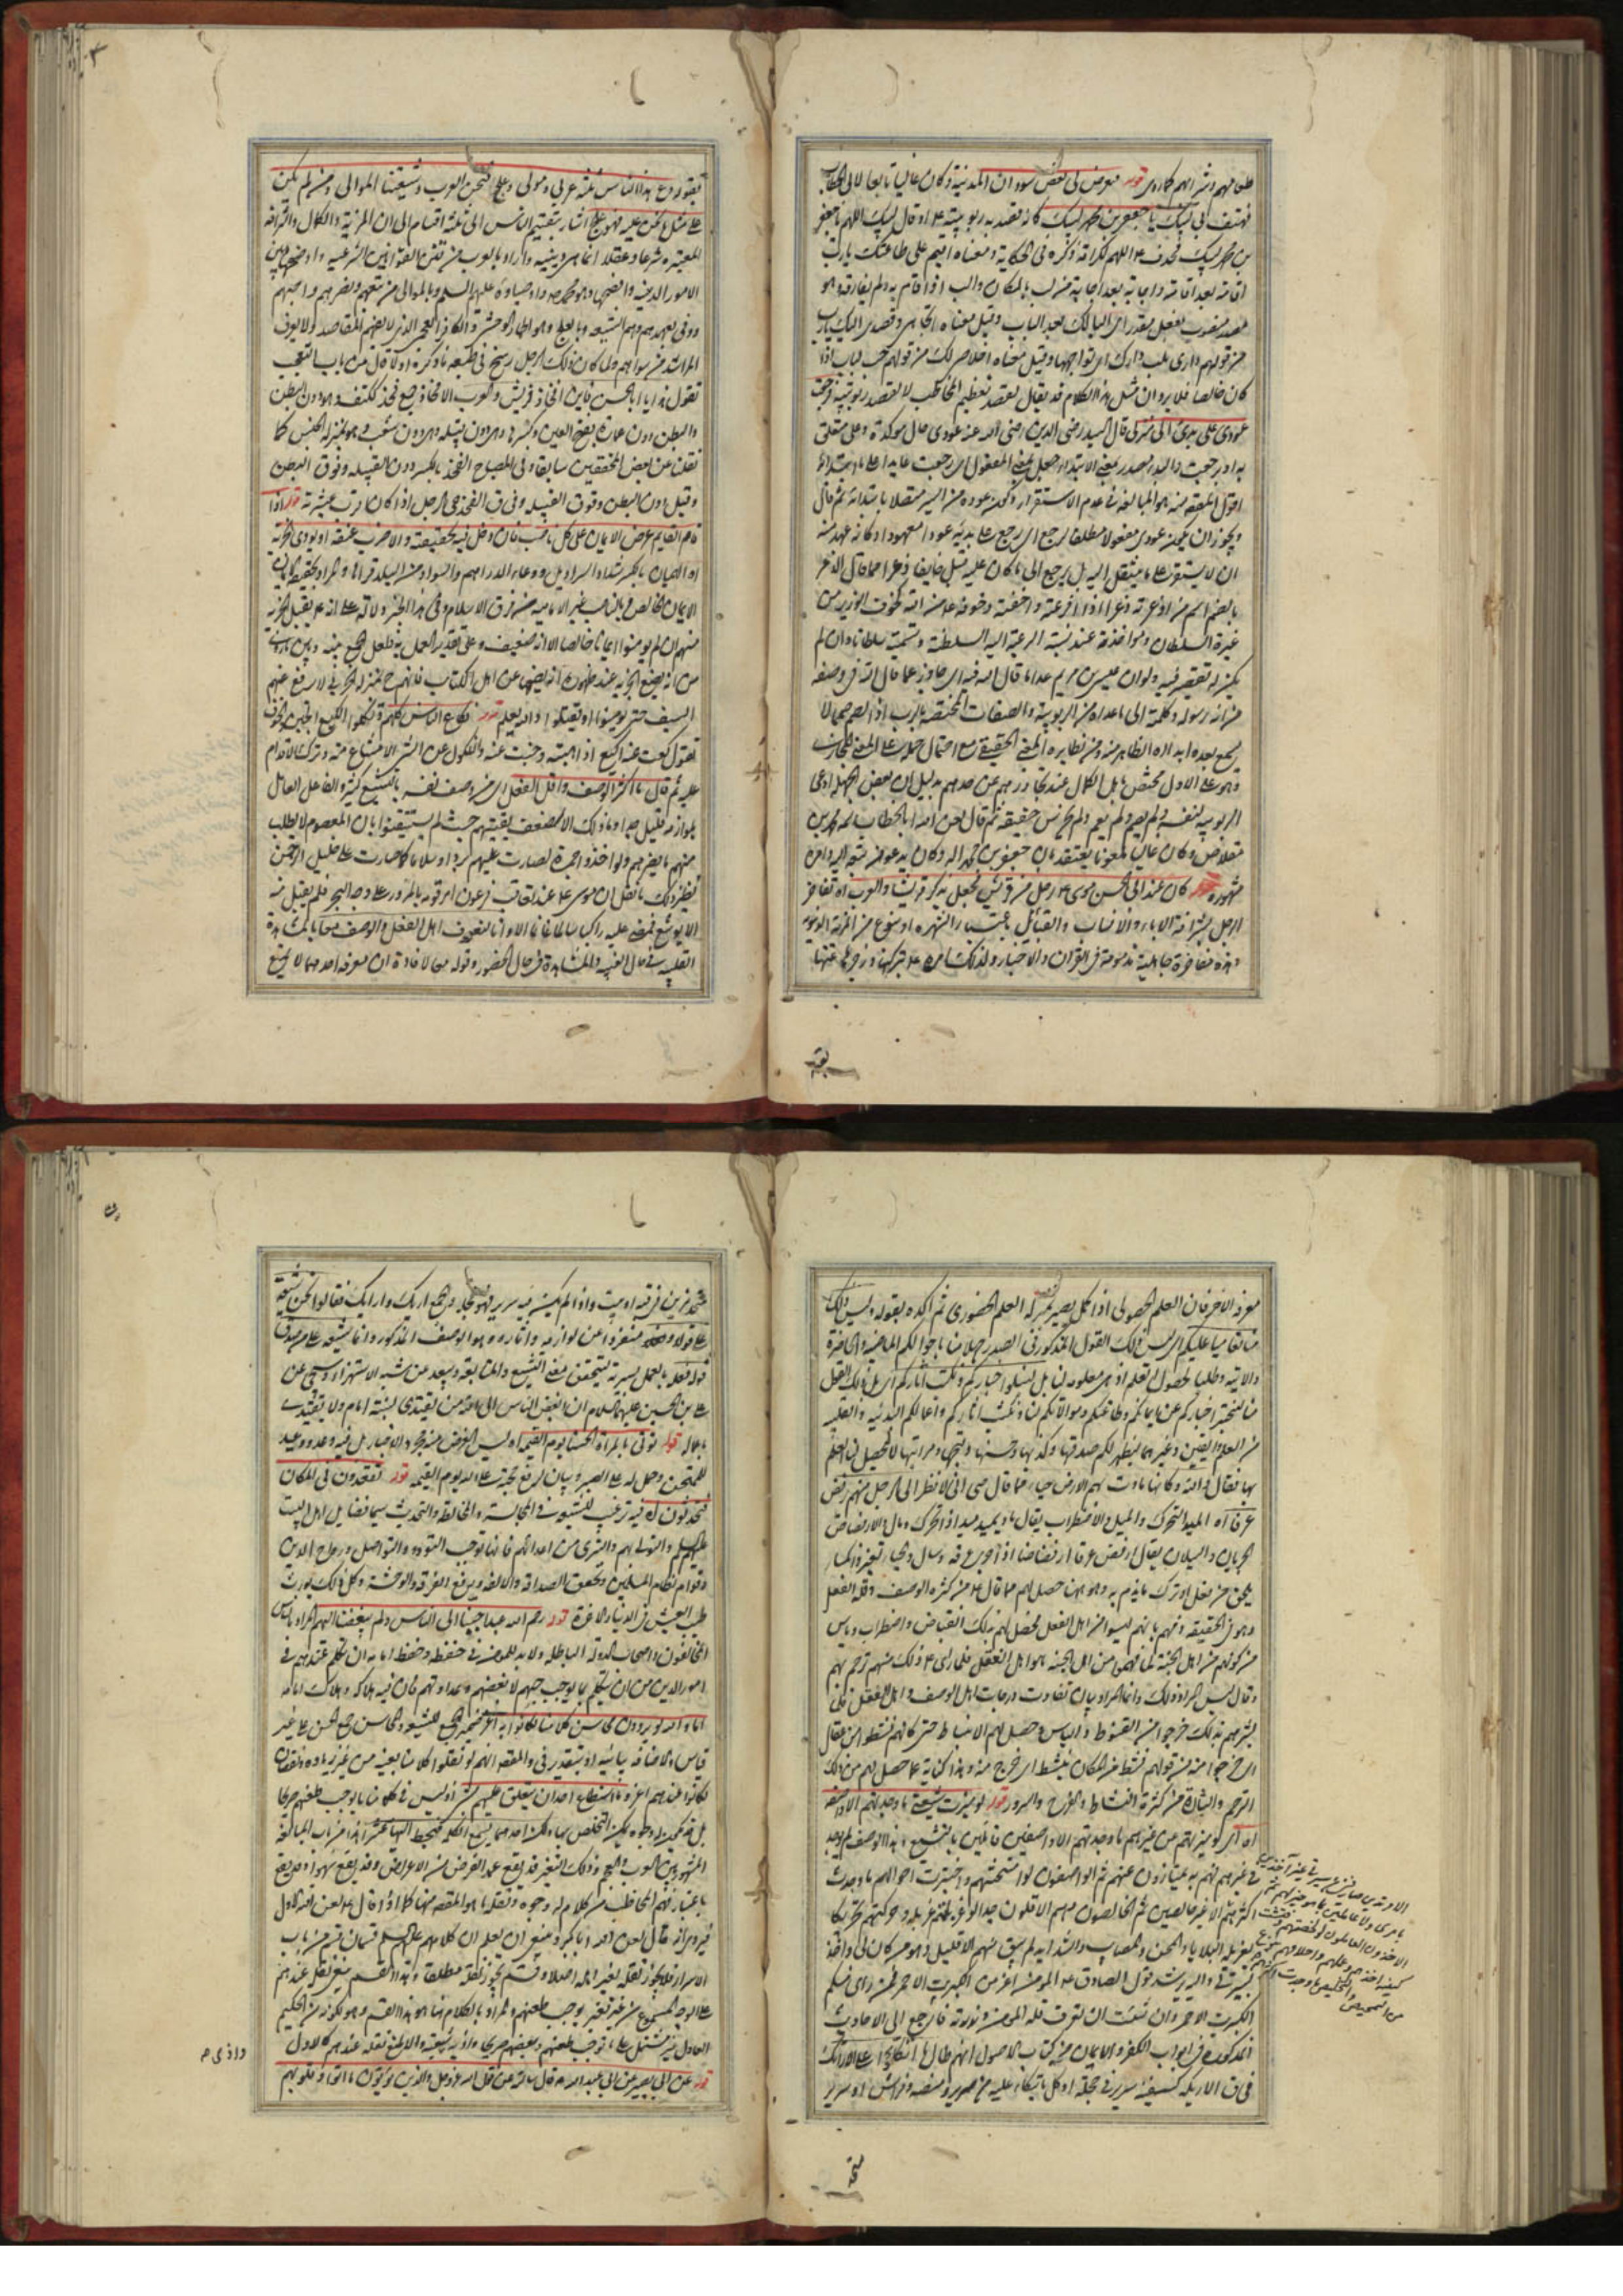 طعامهم وشرابهم كما روى قوله فعرض لى بعض سودان المدينة وكان غاليا تابعا لابى الخطاب
فهتف بى لبيك يا جعفر بن محمد لبيك كانه قصد به ربوبيته ع او قال لبيك اللهم يا جعفر
بن محمد لبيك فحذف ع اللهم لكراهة ذكره فى الحكاية ومعناه اقيم على طاعتك يا رب
اقامة بعد اقامة واجابة بعد اجابة من لب بالمكان والب اذا اقام به ولم يفارقه وهو
مصدر منصوب بفعل مقدر اى الب لك بعد الباب وقيل معناه اتجاهى وقصدى اليك يا رب
من قولهم دارى تلب دارك اى تواجهها وقيل معناه اخلاصى لك من قولهم حب لباب اذا
كان خالصا فلا يرد ان مثل هذا الكلام قد يقال لقصد تعظيم المخاطب لا لقصد ربوبيته فرجعت
عودى على بدئى الى منزلى قال السيد رضى الدين رضى الله عنه عودى حال موكدة وعلى متعلق
به او برجعت والبدء مصدر بمعنى الابتداء جعل بمعنى المفعول اى رجعت عايدا على ما ابتدأته
اقول المقصود منه هو المبالغة فى عدم الاستقرار وكون عوده من السير متصلا بابتدائه ثم قال
ويجوز ان يكون عودى مفعولا مطلقا لرجع اى رجع على بدئه عودا معهودا وكانه عهد منه
ان لا يستقر على ما ينتقل اليه بل يرجع الى ما كان عليه قبل خايفا ذعرا مما قال الذعر
بالضم اسم من اذعرته ذعرا اذا افزعته واخفته وخوفه ع من الله كخوف الوزير من
غيرة السلطان ومواخذته عند نسبة الرعية اليه السلطنة وتسميته سلطانا وان لم
يكن له تقصير فيه ولو ان عيسى بن مريم عدا ما قال الله فيه اى جاوز عما قال الله فى وصفه
من انه رسوله وكلمته الى ما عداه من الربوبية والصفات المختصة بالرب اذا لصم صمما لا
يسمع بعده ابدا اه الظاهر منه ومن نظايره المعنى الحقيقى مع احتمال حمله على المعنى المجازى
وهو على الاول مختص باهل الكمال عند تجاوزهم عن حدهم بدليل ان بعض الجهلة ادعى
الربوبية لنفسه ولم يصم ولم يعم ولم يخرس حقيقة ثم قال لعن الله ابا الخطاب هو محمد بن
مقلاص وكان غاليا ملعونا يعتقد بان جعفر بن محمد اله وكان يدعو من تبعه اليه وامره
مشهور قوله كان عند ابى الحسن موسى ع رجل من قريش فجعل يذكر قريشا والعرب اه تفاخر
الرجل بشرافة الاباء والانساب والقبايل باعتبار الشهرة او بنوع من المزية الدنيوية
وهذه مفاخرة جاهلية مذمومة فى القران والاخبار ولذلك امره ع بتركها وزجره عنها
بقوله
بقوله دع هذا الناس ثلثة عربى ومولى وعلج فنحن العرب وشيعتنا الموالى ومن لم يكن
على مثل ما نحن عليه فهو علج اشار بتقسيم الناس الى ثلثة اقسام الى ان المزية والكمال والشرافة
المعتبرة شرعا وعقلا انما هى دينية واراد بالعرب من تقنن القوانين الشرعية واوضح
الامور الدينية وافصحها وهو محمد ص واوصياؤه عليهم السلم وبالموالى من تبعهم ونصرهم واحبهم
ووفى بعهدهم وهم الشيعة وبالعلج وهو الحمار الوحشى والكافر العجمى الذى لا يفهم المقاصد ولا يعرف
المراشد من سواهم ولما كان ذلك الرجل رسخ فى طبعه ما ذكره اولا قال من باب التعجب
تقول هذا يا ابا الحسن فاين افخاذ قريش والعرب الافخاذ جمع فخذ ككتف وهو دون البطن
والبطن دون عمارة بفتح العين وكسرها وهى دون قبيلة وهى دون شعب وهو بمنزلة الجنس كما
نقلنا عن بعض المحققين سابقا وفى المصباح الفخذ بالكسر دون القبيلة وفوق البطن
وقيل دون البطن وفوق الفصيلة وفى ق الفخذ حى الرجل اذا كان اقرب عشيرته قوله اذا
قام القايم عرض الايمان على كل ناصب فان دخل فيه بحقيقة والا ضرب عنقه او يودى الجزية
اه الهميان بالكسر شداد السراويل ووعاء الدراهم والسواد من البلد قراها والمراد بحقيقة الايمان
الايمان الخالص وبالناصب غير الامامية من فرق الاسلام وفى هذا الخبر دلالة على انه ع يقبل الجزية
منهم ان لم يومنوا ايمانا خالصا الا انه ضعيف وعلى تقدير العمل به فلعل الجمع بينه وبين ما روى
من انه يضع الجزية عند ظهوره انه يضعها عن اهل الكتاب فانهم ح بمنزلة الحربى لا يرفع عنهم
السيف حتى يومنوا او يقتلوا والله يعلم قوله تكاع الناس كلهم ونكلوا الكيع الجبن والخوف
تقول كعت عنه اكيع اذا هبته وجبنت عنه والنكول عن الشىء الامتناع منه وترك الاقدام
عليه ثم قال ما اكثر الوصف واقل الفعل اى من وصف نفسه بالتشيع كثير والفاعل العامل
بلوازمه قليل جدا وما ذلك الا لضعف يقينهم حيث لم يستيقنوا بان المعصوم لا يطلب
منهم ما يضرهم ولو اخذوا جمرة لصارت عليهم بردا وسلاما كما صارت على خليل الرحمن
نظير ذلك ما نقل ان موسى ع عند تعاقب فرعون امر قومه بالمرور على وجه البحر فلم يقبل منه
الا يوشع فمضى عليه راكبا سالما غانما الا وانا لنعرف اهل الفعل والوصف معا بالمشاهدة
القلبية فى حال الغيبة والمشاهدة فى حال الحضور وقوله معا لافادة ان معرفة احدهما لا تمنع
معرفة الاخر فان العلم الحصولى اذا كمل يصير بمنزلة العلم الحضورى ثم اكده بقوله وليس ذلك
منا تعاميا عليكم اى ليس ذلك القول المذكور فى الصدر جهلا منا باحوالكم الماضية والحاضرة
والاتية وطلبا لحصول العلم اذ هى معلومة لنا بل لنبلو اخباركم ونكتب اثاركم اى بل ذلك القول
منا لنختبر اخباركم عن ايمانكم وطاعتكم وموالاتكم لنا ونكتب اثاركم واعمالكم البدنية والقلبية
من العلم واليقين وغيرهما ليظهر لكم صدقها وكذبها وحسنها وقبحها ومراتبها لا لتحصيل
بها فقال والله وكانها مادت بهم الارض حياء مما قال حتى انى لانظر الى الرجل منهم يرفض
عرقا اه الميد التحرك والميل والاضطراب يقال ماد يميد ميدا اذا تحرك ومال والارفضاض
الجريان والسيلان يقال ارفض عرقا ارفضاضا اذا جرى عرقه وسال والحياء تغير وانكسار
يلحق من فعل او ترك ما يذم به وهو ههنا حصل لهم مما قال ع من كثرة الوصف وقلة الفعل
وهو فى الحقيقة ذمهم بانهم ليسوا من اهل الفعل فحصل لهم بذلك انقباض واضطراب وياس
من كونهم من اهل الجنة لما فهموا من ان اهل الجنة هو اهل الفعل فلما راى ع ذلك منهم ترحم بهم
وقال ليس المراد ذلك وانما المراد بيان تفاوت درجات اهل الوصف واهل الفعل فلما
بشرهم بذلك خرجوا من القنوط والياس وحصل لهم الانبساط حتى كانهم نشطوا من عقال
اى خرجوا منه من قولهم نشط من المكان ينشط اى خرج منه وهذا كناية عما حصل لهم من ذلك
الترحم والبشارة من كثرة النشاط والفرح والسرور قوله لو ميزت شيعتى ما وجدتهم الا واصفة
اه اى لو ميزتهم عن غيرهم ما وجدتهم الا واصفين قائلين بالتشيع وهذا الوصف لم يوجد
فى غيرهم لانهم به يمتازون عنهم ثم الواصفون لو امتحنتهم واختبرت احوالهم ما وجدت
اكثرهم الا غير خالصين ثم الخالصون منهم الاقلون جدا لو غربلتهم غربلة وحركتهم تحريكا
بغربلة البلايا والمحن والمصايب والشدايد لم يبق منهم الا قليل وهو من كان لى واخذ
بسيرتى واليه يرشد قول الصادق ع المومن اعز من الكبريت الاحمر فمن راى منكم
الكبريت الاحمر وان شئت ان تعرف قلة المومن وندرته فارجع الى الاحاديث
المذكورة فى ابواب الكفر والايمان من كتاب الاصول انهم طال ما اتكؤا على الارائك
فى ق الاريكة كسفينة سرير فى حجلة او كل ما يتكاء عليه من سرير ومنصة وفراش او سرير
متخذ
متخذ مزين فى قبة او بيت واذا لم يكن فيه سرير فهو حجلة والجمع اريك وارائك فقالوا نحن شيعة
على قولا منفردا عن لوازمه واثاره وهو الوصف المذكور وانما شيعة على من صدق
قوله فعله بالعمل بسيرته ليتحقق معنى التشيع والمتابعة ويبعد عن شبه الاستهزاء وسيجى عن
على بن الحسين عليهما السلام ان ابغض الناس الى الله من يقتدى بسنة امام ولا يقتدى
باعماله قوله توتى بالمراة الحسناء يوم القيمة اه ليس الغرض منه مجرد الاخبار بل فيه وعد ووعيد
للممتحن وحمل له على الصبر وبيان لرفع حجته على الله يوم القيمة قوله تقعدون فى المكان
فتحدثون اه فيه ترغيب للشيعة فى المجالسة والمخالطة والتحديث سيما فضايل اهل البيت
عليهم السلم والتولى لهم والتبرى من اعدائهم فانها توجب التودد والتواصل ورواج الدين
وقوام نظام المسلمين وتحقق الصداقة والالفة ورفع الفرقة والوحشة وكل ذلك يورث
طيب العيش فى الدنيا والاخرة قوله رحم الله عبدا حببنا الى الناس ولم يبغضنا اليهم المراد بالناس
المخالفون واصحاب الدولة الباطلة ولا بد للمومن فى حفظه وحفظ امامه ان تكلم عندهم فى
امور الدين من ان يتكلم بما يوجب حبهم لا بغضهم وعداوتهم فان فيه هلاكه وهلاك امامه
اما والله لو يروون محاسن كلامنا لكانوا به اعز ضمير الجمع للشيعة والمحاسن جمع الحسن على غير
قياس والاضافة بيانية او بتقدير فى والمقصود انهم لو نقلوا كلامنا بعينه من غير زيادة ونقصان
لكانوا عندهم اعز وما استطاع احد ان يتعلق عليهم بشىء اذ ليس فى كلامنا ما يوجب طعنهم صريحا
بل قد يكون له وجوه يمكن التخلص بها ولكن احدهم يسمع الكلمة فيحط اليها عشرا هذا من باب المبالغة
المشهورة بين العرب والعجم وذلك التغير قد يقع عمدا لغرض من الاغراض وقد يقع سهوا وقد يقع
باعتبار فهم المخاطب من كلامه وجوه ونقله ما هو المقصود منها كما اذا قال احد لعن الله الاول
فيروى انه قال لعن الله ابا بكر وينبغى ان يعلم ان كلامهم عليهم السلم قسمان قسم من باب
الاسرار فلا يجوز نقله لغير اهله اصلا وقسم يجوز نقله مطلقا وهذا القسم ينبغى نقله عندهم
على الوجه المسموع من غير تغيير يوجب طعنهم والمراد بالكلام هنا هو هذا القسم وهو لكونه من الحكيم
العادل غير مشتمل على ما يوجب طعنهم وبغضهم صريحا واذية شيعته والا لمنع نقله عندهم كالاول
قوله عن ابى بصير عن ابى عبد الله ع قال سالته عن قول الله عز وجل والذين يؤتون ما اتوا وقلوبهم
واذى م